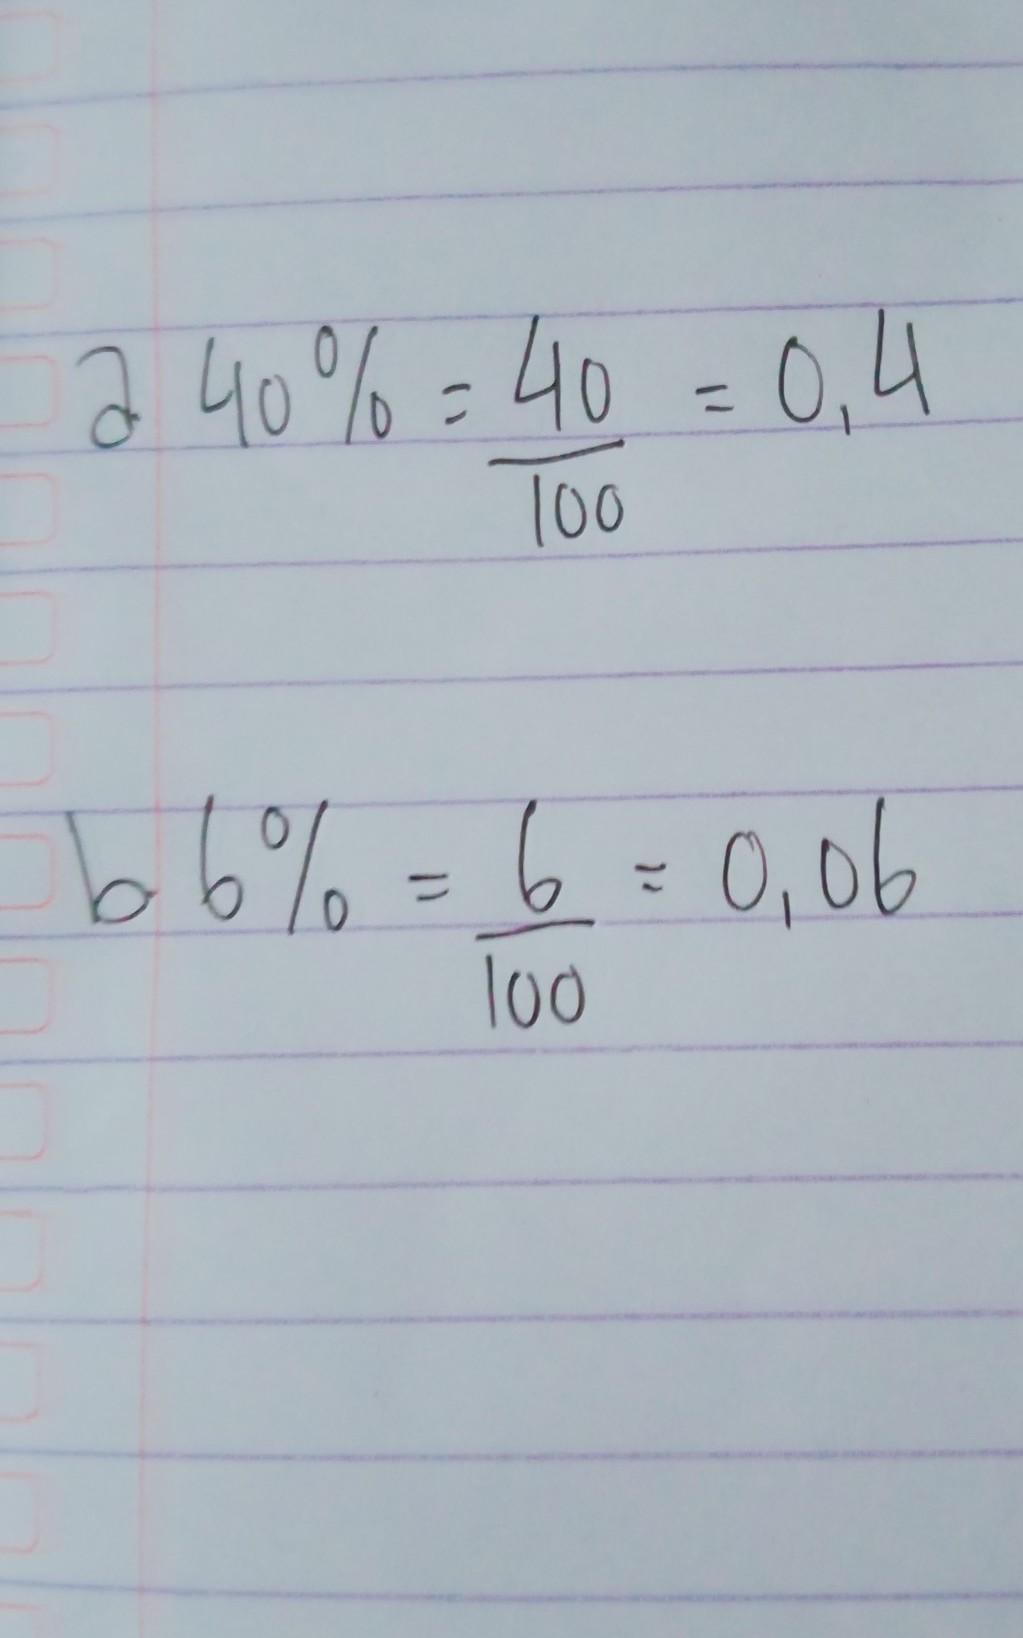 a 40% = 40/100 = 0,4
b 6% = 6/100 = 0,06